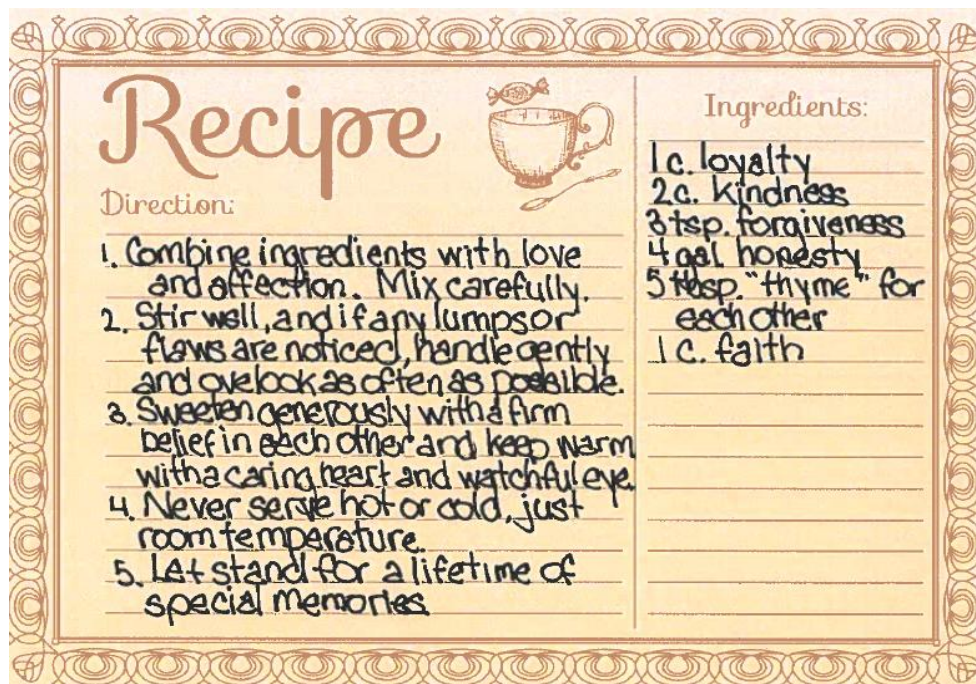 Recipe
Direction:
1. Combine ingredients with love
and affection. Mix carefully.
2. Stir well, and if any lumps or
flaws are noticed, handle gently
and ovelook as often as possible.
3. Sweeten generously with a firm
belief in each other and keep warm
with a caring heart and watchful eye.
4. Never serve hot or cold, just
room temperature.
5. Let stand for a lifetime of
special memories.
Ingredients:
1 c. loyalty
2 c. kindness
3 tsp. forgiveness
4 gal. honesty
5 tbsp. "thyme" for
each other
1 c. faith